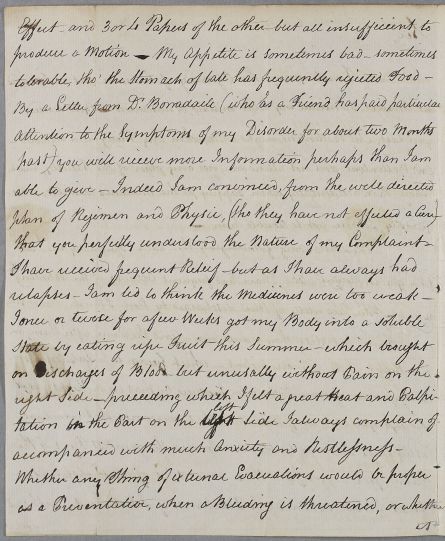 Effect - and 3 or 4 Papers of the other - but all insufficient to
produce a Motion - My Appetite is sometimes bad - sometimes
tolerable, tho' the Stomach of late has frequently rejected Food -
By a Letter from Dr. Borradaile (who as a Friend has paid particular
Attention to the Symptoms of my Disorder for about two Months
past) you will receive more Information perhaps than I am
able to give - Indeed I am convinced, from the well directed
plan of Regimen and Physic, (tho they have not effected a Cure)
that you perfectly understood the Nature of my Complaint -
I have received frequent Relief - but as I have always had
relapses - I am led to think the Medicines were too weak -
I once or twice for a few Weeks got my Body into a soluble
State by eating ripe Fruit this Summer - which brought
on Discharges of Blood but unusally without Pain on the
right Side - preceeding which I felt a great Heat and Palpi-
tation in the Part on the left Side I always complain of
accompanied with much Anxiety and Restlessness -
Whether any Thing of external Evacuations would be proper
as a Preventative, when a Bleeding is threatened, or whether